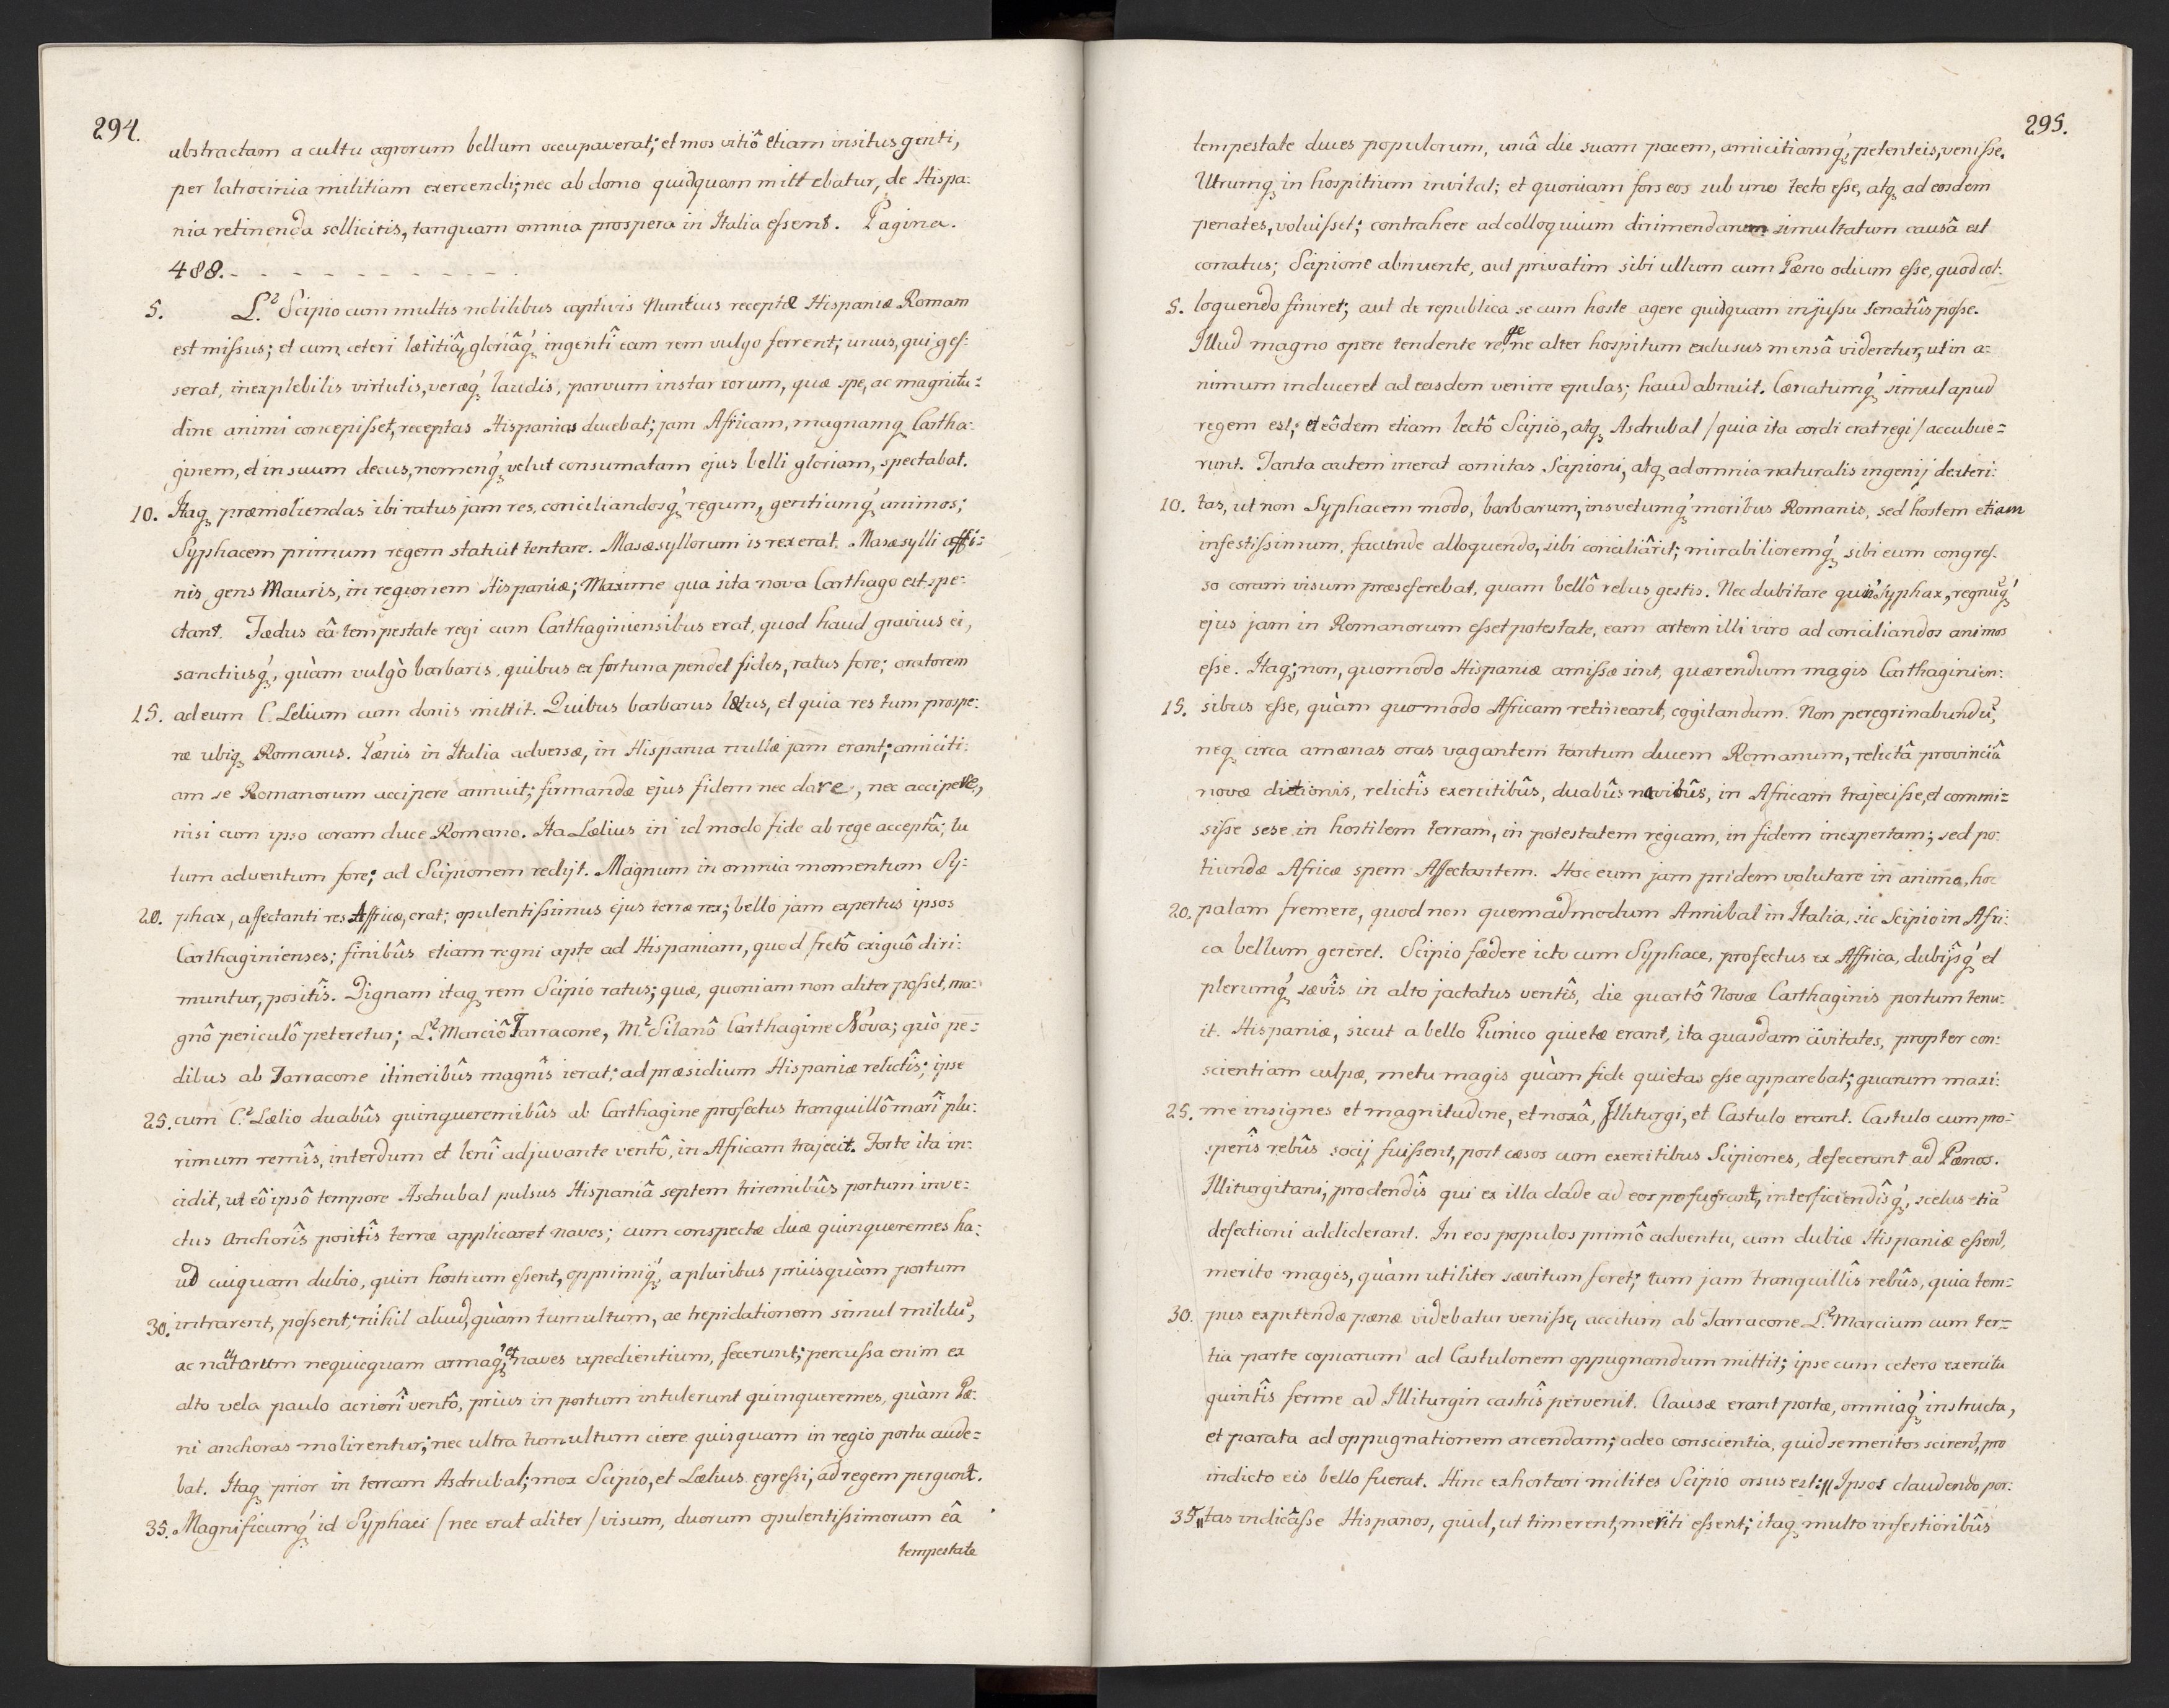 294.
abstractam a cultu agrorum bellum occupaverat; et mos vitiô etiam insitus genti,
per latrocinia militiam exercendi; nec ab domo quidquam mittebatur, de Hispa:
nia retinenda sollicitis, tanquam omnia prospera in Italia essent. Pagina.
488. - - - - - - - - - -
5. L.² Scipio cum multis nobilibus captivis Nuntius receptæ Hispaniæ Romam
est missus; et cum ceteri lætitiâ, gloriâq́ꝫ ingentî eam rem vulgo ferrent; unus, qui ges:
serat, inexplebilis virtutis, veræq́ꝫ laudis, parvum instar eorum, quæ spe, ac magnitu:
dine animi concepisset, receptas Hispanias ducebat; jam Africam, magnamqꝫ Cartha:
ginem, et in suum decus, nomenq́ꝫ velut consumatam ejus belli gloriam, spectabat.
10. Itaqꝫ præmoliendas ibi ratus jam res, conciliandosq́ꝫ regum, gentiumq́ꝫ animos;
Syphacem primum regem statuit tentare. Masæsyllorum is rex erat. Masæsylli affi:
nis gens Mauris, in regionem Hispaniæ; Maxime qua sita nova Carthago est spe:
ctant. Fædus eâ tempestate regi cum Carthaginiensibus erat, quod haud gravius ei,
sanctiusq́ꝫ, quàm vulgò barbaris, quibus ex fortuna pendet fides, ratus fore; oratorem
15. ad eum C. Lelium cum donis mittit. Quibus barbarus lætus, et quia res tum prospe:
ræ ubiqꝫ Romanis. Pænis in Italia adversæ, in Hispania nullæ jam erant; amiciti:
am se Romanorum accipere annuit; firmandæ ejus fidem nec dare, nec accipere,
nisi cum ipso coram duce Romano. Ita Lælius in id modo fide ab rege acceptâ; tu
tum adventum fore; ad Scipionem redijt. Magnum in omnia momentum Sy:
20. phax, affectanti res Affricæ, erat; opulentissimus ejus terræ rex; bello jam expertus ipsos
Carthaginienses; finibûs etiam regni apte ad Hispaniam, quod fretô exiguô diri:
muntur, positîs. Dignam itaqꝫ rem Scipio ratus; quæ, quoniam non aliter posset, ma:
gnô periculô peteretur; L.² Marciô Tarracone, M.² Silanô Carthagine Nova; quò pe:
dibus ab Tarracone itineribûs magnîs ierat; ad præsidium Hispaniæ relictîs; ipse
25. cum C.² Lælio duabûs quinqueremibûs ab Carthagine profectus tranquillô marî plu:
rimum remîs, interdum et lenî adjuvante ventô, in Africam trajecit. Forte ita in:
cidit, ut eô ipsô tempore Asdrubal pulsus Hispaniâ septem triremibûs portum inve:
ctus anchorîs positîs terræ applicaret naves; cum conspectæ duæ quinqueremes ha:
ud cuiquam dubio, quin hostium essent, opprimiq́ꝫ, a pluribus priusquàm portum
30. intrarent, possent; nihil aliud, quàm tumultum, ac trepidationem simul militu͂,
ac nautarum nequicquam armaq́ꝫ, et naves expedientium, fecerunt; percussa enim ex
alto vela paulo acriorî ventô, prius in portum intulerunt quinqueremes, quàm Pæ:
ni anchoras molirentur; nec ultra tumultum ciere quisquam in regio portu aude:
bat. Itaqꝫ prior in terram Asdrubal; mox Scipio, et Lælius egressi, ad regem pergunt.
35. Magnificumq́ꝫ id Syphaci /nec erat aliter/ visum, duorum opulentissimorum eâ
tempestate
295.
tempestate duces populorum, unâ die suam pacem, amicitiamq́ꝫ, petenteis, venisse.
Utrumqꝫ in hospitium invitat; et quoniam fors eos sub uno tecto esse, atqꝫ ad eosdem
penates, voluisset; contrahere ad colloquium dirimendarum simultatum causâ est
conatus; Scipione abnuente, aut privatim sibi ullum cum Pæno odium esse, quod col:
5. loquendo finiret; aut de republica se cum hoste agere quidquam injussu senatûs posse.
Illud magno opere tendente rege, ne alter hospitum exclusus mensâ videretur, ut in a:
nimum induceret ad easdem venire epulas; haud abnuit. Cænatumq́ꝫ simul apud
regem est; et eôdem etiam lectô Scipio, atqꝫ Asdrubal /quia ita cordi erat regi/ accubue:
runt. Tanta autem inerat comitas Scipioni, atqꝫ ad omnia naturalis ingenij dexteri:
10. tas, ut non Syphacem modo, barbarum, insvetumq́ꝫ moribus Romanis, sed hostem etiam
infestissimum, facunde alloquendo, sibi conciliârit; mirabilioremq́ꝫ sibi eum congres:
so coram visum præseferebat, quam bellô rebus gestis. Nec dubitare quin Syphax, regnu͂q́ꝫ
ejus jam in Romanorum esset potestate, eam artem illi viro ad conciliandos animos
esse. Itaqꝫ; non, quomodo Hispaniæ amissæ sint, quærendum magis Carthaginien:
15. sibus esse, quàm quomodo Africam retineant, cogitandum. Non peregrinabundu͂,
neqꝫ circa amænas oras vagantem tantum ducem Romanum, relictâ provinciâ
novæ ditionis, relictîs exercitibûs, duabûs navibûs, in Africam trajecisse, et commi:
sisse sese in hostilem terram, in potestatem regiam, in fidem inexpertam; sed po:
tiundæ Africæ spem Affectantem. Hoc eum jam pridem volutare in animo, hoc
20. palam fremere, quod non quemadmodum Annibal in Italia, sic Scipio in Afri:
ca bellum gereret. Scipio fædere icto cum Syphace, profectus ex Affrica, dubijsq́ꝫ et
plerumq́ꝫ sævîs in alto jactatus ventîs, die quartô Novæ Carthaginis portum tenu:
it. Hispaniæ, sicut a bello Punico quietæ erant, ita quasdam civitates, propter con:
scientiam culpæ, metu magis quàm fide quietas esse apparebat; quarum maxi:
25. me insignes et magnitudine, et noxâ, Illiturgi, et Castulo erant. Castulo cum pro:
sperîs rebûs socij fuissent, post cæsos cum exercitibus Scipiones, defecerant ad Pænos.
Illiturgitani, prodendîs qui ex illa clade ad eos perfugerant, interficiendîsq́ꝫ, scelus etia͂
defectioni addiderant. In eos populos primô adventu, cum dubiæ Hispaniæ essent,
merito magis, quàm utiliter sævitum foret; tum jam tranquillîs rebûs, quia tem:
30. pus expetendæ pænæ videbatur venisse, accitum ab Tarracone L.² Marcium cum ter:
tia parte copiarum ad Castulonem oppugnandum mittit; ipse cum cetero exercitu
quintîs ferme ad Illiturgin castrîs pervenit. Clausæ erant portæ, omniaq́ꝫ instructa,
et parata ad oppugnationem arcendam; adeo conscientia, quid se meritos scirent, pro
indicto eis bello fuerat. Hinc exhortari milites Scipio orsus est: „Ipsos claudendo por:
35. „tas indicâsse Hispanos, quid, ut timerent, meriti essent; itaqꝫ multo infestioribûs